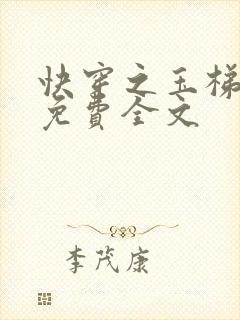 快穿之玉梯
免費全文
李茂康